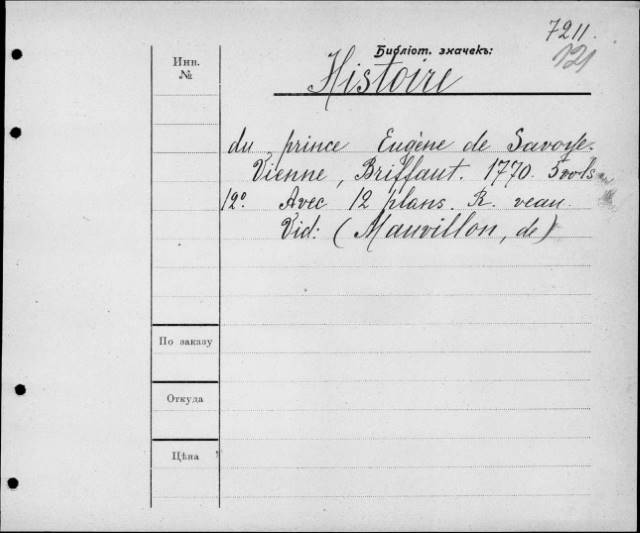 7211.
121
Библіот. значекъ:
Инв.
№
Histoire
du prince Eugène de Savoye.
Vienne, Briffaut. 1770. 5 vols
12º. Avec 12 plans. R. veau.
Vid: (Mauvillon, de)
По заказу
Откуда
Цѣна